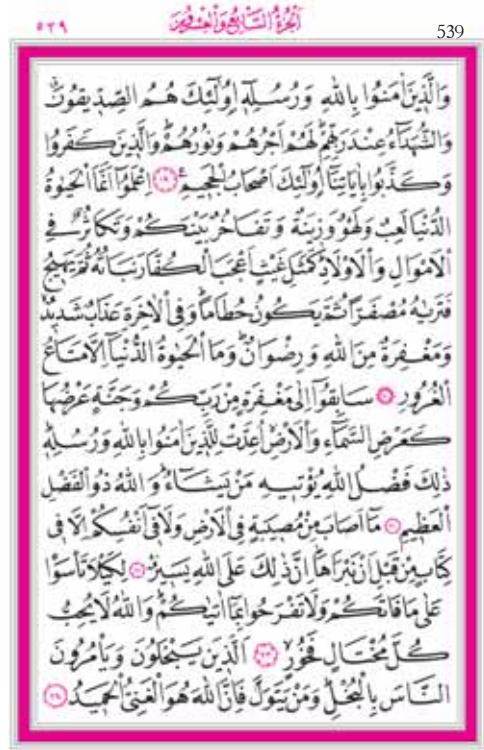 ٥٣٩ اَلْجُزْءُ السَّابِعُ وَالْعِشْرُونَ 539
وَالَّذٖينَ اٰمَنُوا بِاللّٰهِ وَرُسُلِهٖٓ اُولٰٓئِكَ هُمُ الصِّدّٖيقُونَۗ
وَالشُّهَدَٓاءُ عِنْدَ رَبِّهِمْۜ لَهُمْ اَجْرُهُمْ وَنُورُهُمْۜ وَالَّذٖينَ كَفَرُوا
وَكَذَّبُوا بِاٰيَاتِنَٓا اُولٰٓئِكَ اَصْحَابُ الْجَحٖيمِ ﴿١٩﴾ اِعْلَمُٓوا اَنَّمَا الْحَيٰوةُ
الدُّنْيَا لَعِبٌ وَلَهْوٌ وَزٖينَةٌ وَتَفَاخُرٌ بَيْنَكُمْ وَتَكَاثُرٌ فِي
الْاَمْوَالِ وَالْاَوْلَادِۜ كَمَثَلِ غَيْثٍ اَعْجَبَ الْكُفَّارَ نَبَاتُهُ ثُمَّ يَهٖيجُ
فَتَرٰيهُ مُصْفَرًّا ثُمَّ يَكُونُ حُطَامًاۜ وَفِي الْاٰخِرَةِ عَذَابٌ شَدٖيدٌ
وَمَغْفِرَةٌ مِنَ اللّٰهِ وَرِضْوَانٌۜ وَمَا الْحَيٰوةُ الدُّنْيَٓا اِلَّا مَتَاعُ
الْغُرُورِ ﴿٢٠﴾ سَابِقُٓوا اِلٰى مَغْفِرَةٍ مِنْ رَبِّكُمْ وَجَنَّةٍ عَرْضُهَا
كَعَرْضِ السَّمَٓاءِ وَالْاَرْضِۙ اُعِدَّتْ لِلَّذٖينَ اٰمَنُوا بِاللّٰهِ وَرُسُلِهٖۜ
ذٰلِكَ فَضْلُ اللّٰهِ يُؤْتٖيهِ مَنْ يَشَٓاءُۜ وَاللّٰهُ ذُو الْفَضْلِ
الْعَظٖيمِ ﴿٢١﴾ مَٓا اَصَابَ مِنْ مُصٖيبَةٍ فِي الْاَرْضِ وَلَا فٖٓي اَنْفُسِكُمْ اِلَّا فٖي
كِتَابٍ مِنْ قَبْلِ اَنْ نَبْرَاَهَاۜ اِنَّ ذٰلِكَ عَلَى اللّٰهِ يَسٖيرٌ ﴿٢٢﴾ لِكَيْلَا تَأْسَوْا
عَلٰى مَا فَاتَكُمْ وَلَا تَفْرَحُوا بِمَٓا اٰتٰيكُمْۜ وَاللّٰهُ لَا يُحِبُّ
كُلَّ مُخْتَالٍ فَخُورٍ ﴿٢٣﴾ اَلَّذٖينَ يَبْخَلُونَ وَيَأْمُرُونَ
النَّاسَ بِالْبُخْلِۜ وَمَنْ يَتَوَلَّ فَاِنَّ اللّٰهَ هُوَ الْغَنِيُّ الْحَمٖيدُ ﴿٢٤﴾